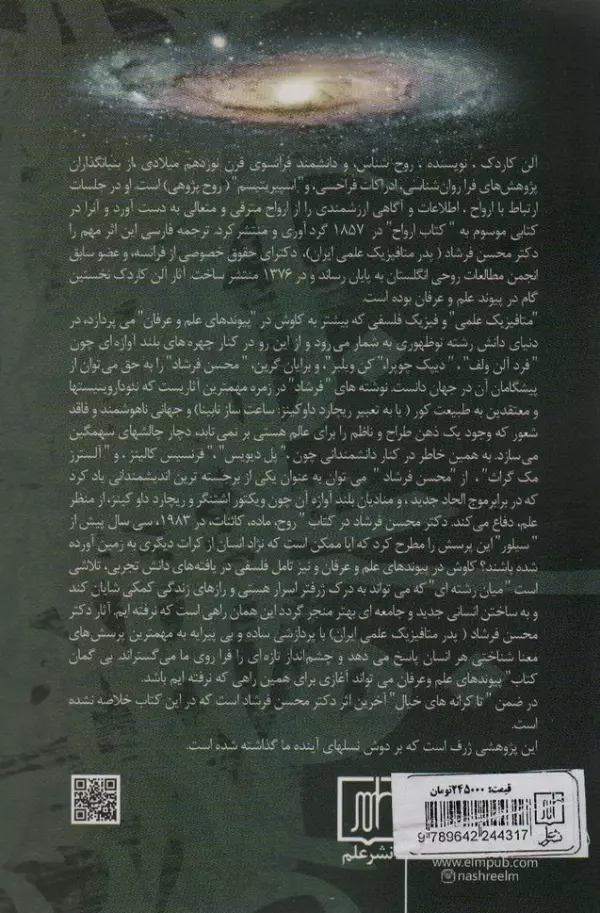 آلن کاردک ، نویسنده ، روح شناس، و دانشمند فرانسوی قرن نوزدهم میلادی ،از بنیانگذاران
پژوهش‌های فرا روان‌شناسی، ادراکات فراحسی، و" اسپیریتیسم " ( روح پژوهی) است. او در جلسات
ارتباط با ارواح ، اطلاعات و آگاهی ارزشمندی را از ارواح مترقی و متعالی به دست آورد و آنرا در
کتابی موسوم به " کتاب ارواح" در ۱۸۵۷ گرد آوری و منتشر کرد. ترجمه فارسی این اثر مهم را
دکتر محسن فرشاد ( پدر متافیزیک علمی ایران)، دکترای حقوق خصوصی از فرانسه، و عضو سابق
انجمن مطالعات روحی انگلستان به پایان رساند و در ۱۳۷۶ منتشر ساخت. آثار آلن کاردک نخستین
گام در پیوند علم و عرفان بوده است.
"متافیزیک علمی" و فیزیک فلسفی که بیشتر به کاوش در "پیوندهای علم و عرفان" می پردازد، در
دنیای دانش رشته نوظهوری به شمار می رود و از این رو در کنار چهره های بلند آوازه ای چون
" فرد آلن ولف" ، " دیپک چوپرا،" کن ویلبر"، و برایان گرین، " محسن فرشاد" را به حق می‌توان از
پیشگامان آن در جهان دانست. نوشته های " فرشاد" در زمره مهمترین آثاریست که نئوداروینیستها
و معتقدین به طبیعت کور ( یا به تعبیر ریچارد داوکینز: ساعت ساز نابینا) و جهانی ناهوشمند و فاقد
شعور که وجود یک ذهن طراح و ناظم را برای عالم هستی بر نمی تابد، دچار چالشهای سهمگین
می‌سازد. به همین خاطر در کنار دانشمندانی چون ،" پل دیویس" ، " فرنسیس کالینز ، و "آلسترز
مک گراث" ، از "محسن فرشاد " می توان به عنوان یکی از برجسته ترین اندیشمندانی یاد کرد
که در برابرموج الحاد جدید ، و منادیان بلند آوازه آن چون ویکتور اشتنگر و ریچارد داو کینز، از منظر
علم، دفاع می‌کند. دکتر محسن فرشاد در کتاب " روح، ماده، کائنات، در ۱۹۸۳، سی سال پیش از
" سیلور" این پرسش را مطرح کرد که آیا ممکن است که نژاد انسان از کرات دیگری به زمین آورده
شده باشند؟ کاوش در پیوندهای علم و عرفان و نیز تامل فلسفی در یافته‌های دانش تجربی، تلاشی
است " میان رشته ای" که می تواند به درک ژرفتر اسرار هستی و رازهای زندگی کمکی شایان کند
و به ساختن انسانی جدید و جامعه ای بهتر منجر گردد این همان راهی است که نرفته ایم. آثار دکتر
محسن فرشاد ( پدر متافیزیک علمی ایران) با پردازشی ساده و بی پیرایه به مهمترین پرسش های
معنا شناختی هر انسان پاسخ می دهد و چشم‌انداز تازه‌ای را فرا روی ما می‌گستراند. بی گمان
کتاب" پیوندهای علم وعرفان می تواند آغازی برای همین راهی که نرفته ایم باشد.
در ضمن " تا کرانه های خیال" آخرین اثر دکتر محسن فرشاد است که در این کتاب خلاصه نشده
است.
این پژوهشی ژرف است که بر دوش نسلهای آینده ما گذاشته شده است.
قیمت: ۲۴۵۰۰۰تومان
9 789642 244317
نشر علم
www.elmpub.com
nashreelm